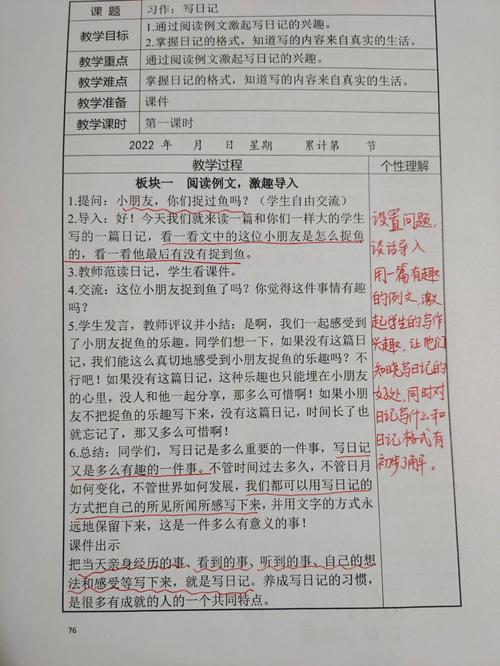 课 题 习作：写日记
教学目标 1.通过阅读例文激起写日记的兴趣。
2.掌握日记的格式，知道写的内容来自真实的生活。
教学重点 通过阅读例文激起写日记的兴趣。
教学难点 掌握日记的格式，知道写的内容来自真实的生活。
教学准备 课件
教学课时 第一课时
2022 年 月 日 星期 累计第 节
教学过程 个性理解
板块一 阅读例文，激趣导入
1.提问：小朋友，你们捉过鱼吗？（学生自由交流）
2.导入：好！今天我们就来读一篇和你们一样大的学生
写的一篇日记，看一看文中的这位小朋友是怎么捉鱼
的，看一看他最后有没有捉到鱼。
3.教师范读日记，学生看课件。
4.交流：这位小朋友捉到鱼了吗？你觉得这件事情有趣
吗？
5.学生发言，教师评议并小结：是啊，我们一起感受到
了小朋友捉鱼的乐趣。同学们想一下，如果没有这篇日
记，我们能这么真切地感受到小朋友捉鱼的乐趣吗？不
行吧！如果没有这篇日记，这种乐趣也只能埋在小朋友
的心里，没人和他一起分享，那多么可惜啊！如果小朋
友不把捉鱼的乐趣写下来，没有这篇日记，时间长了也
就忘记了，那又多么可惜啊！
6.总结：同学们，写日记是多么重要的一件事，写日记
又是多么有趣的一件事。不管时间过去多久，不管日月
如何变化，不管世界如何发展，我们都可以用写日记的
方式把自己的所见所闻所感写下来，并用文字的方式永
远地保留下来，这是一件多么有意义的事！
课件出示
把当天亲身经历的事、看到的事、听到的事、自己的想
法和感受等写下来，就是写日记。养成写日记的习惯，
是很多有成就的人的一个共同特点。
设置问题，
谈话导入
用一篇有趣
的例文，激
起学生的写作
兴趣，让他们
知晓写日记的
好处，同时对
日记写什么和
日记格式有
初步了解。
76